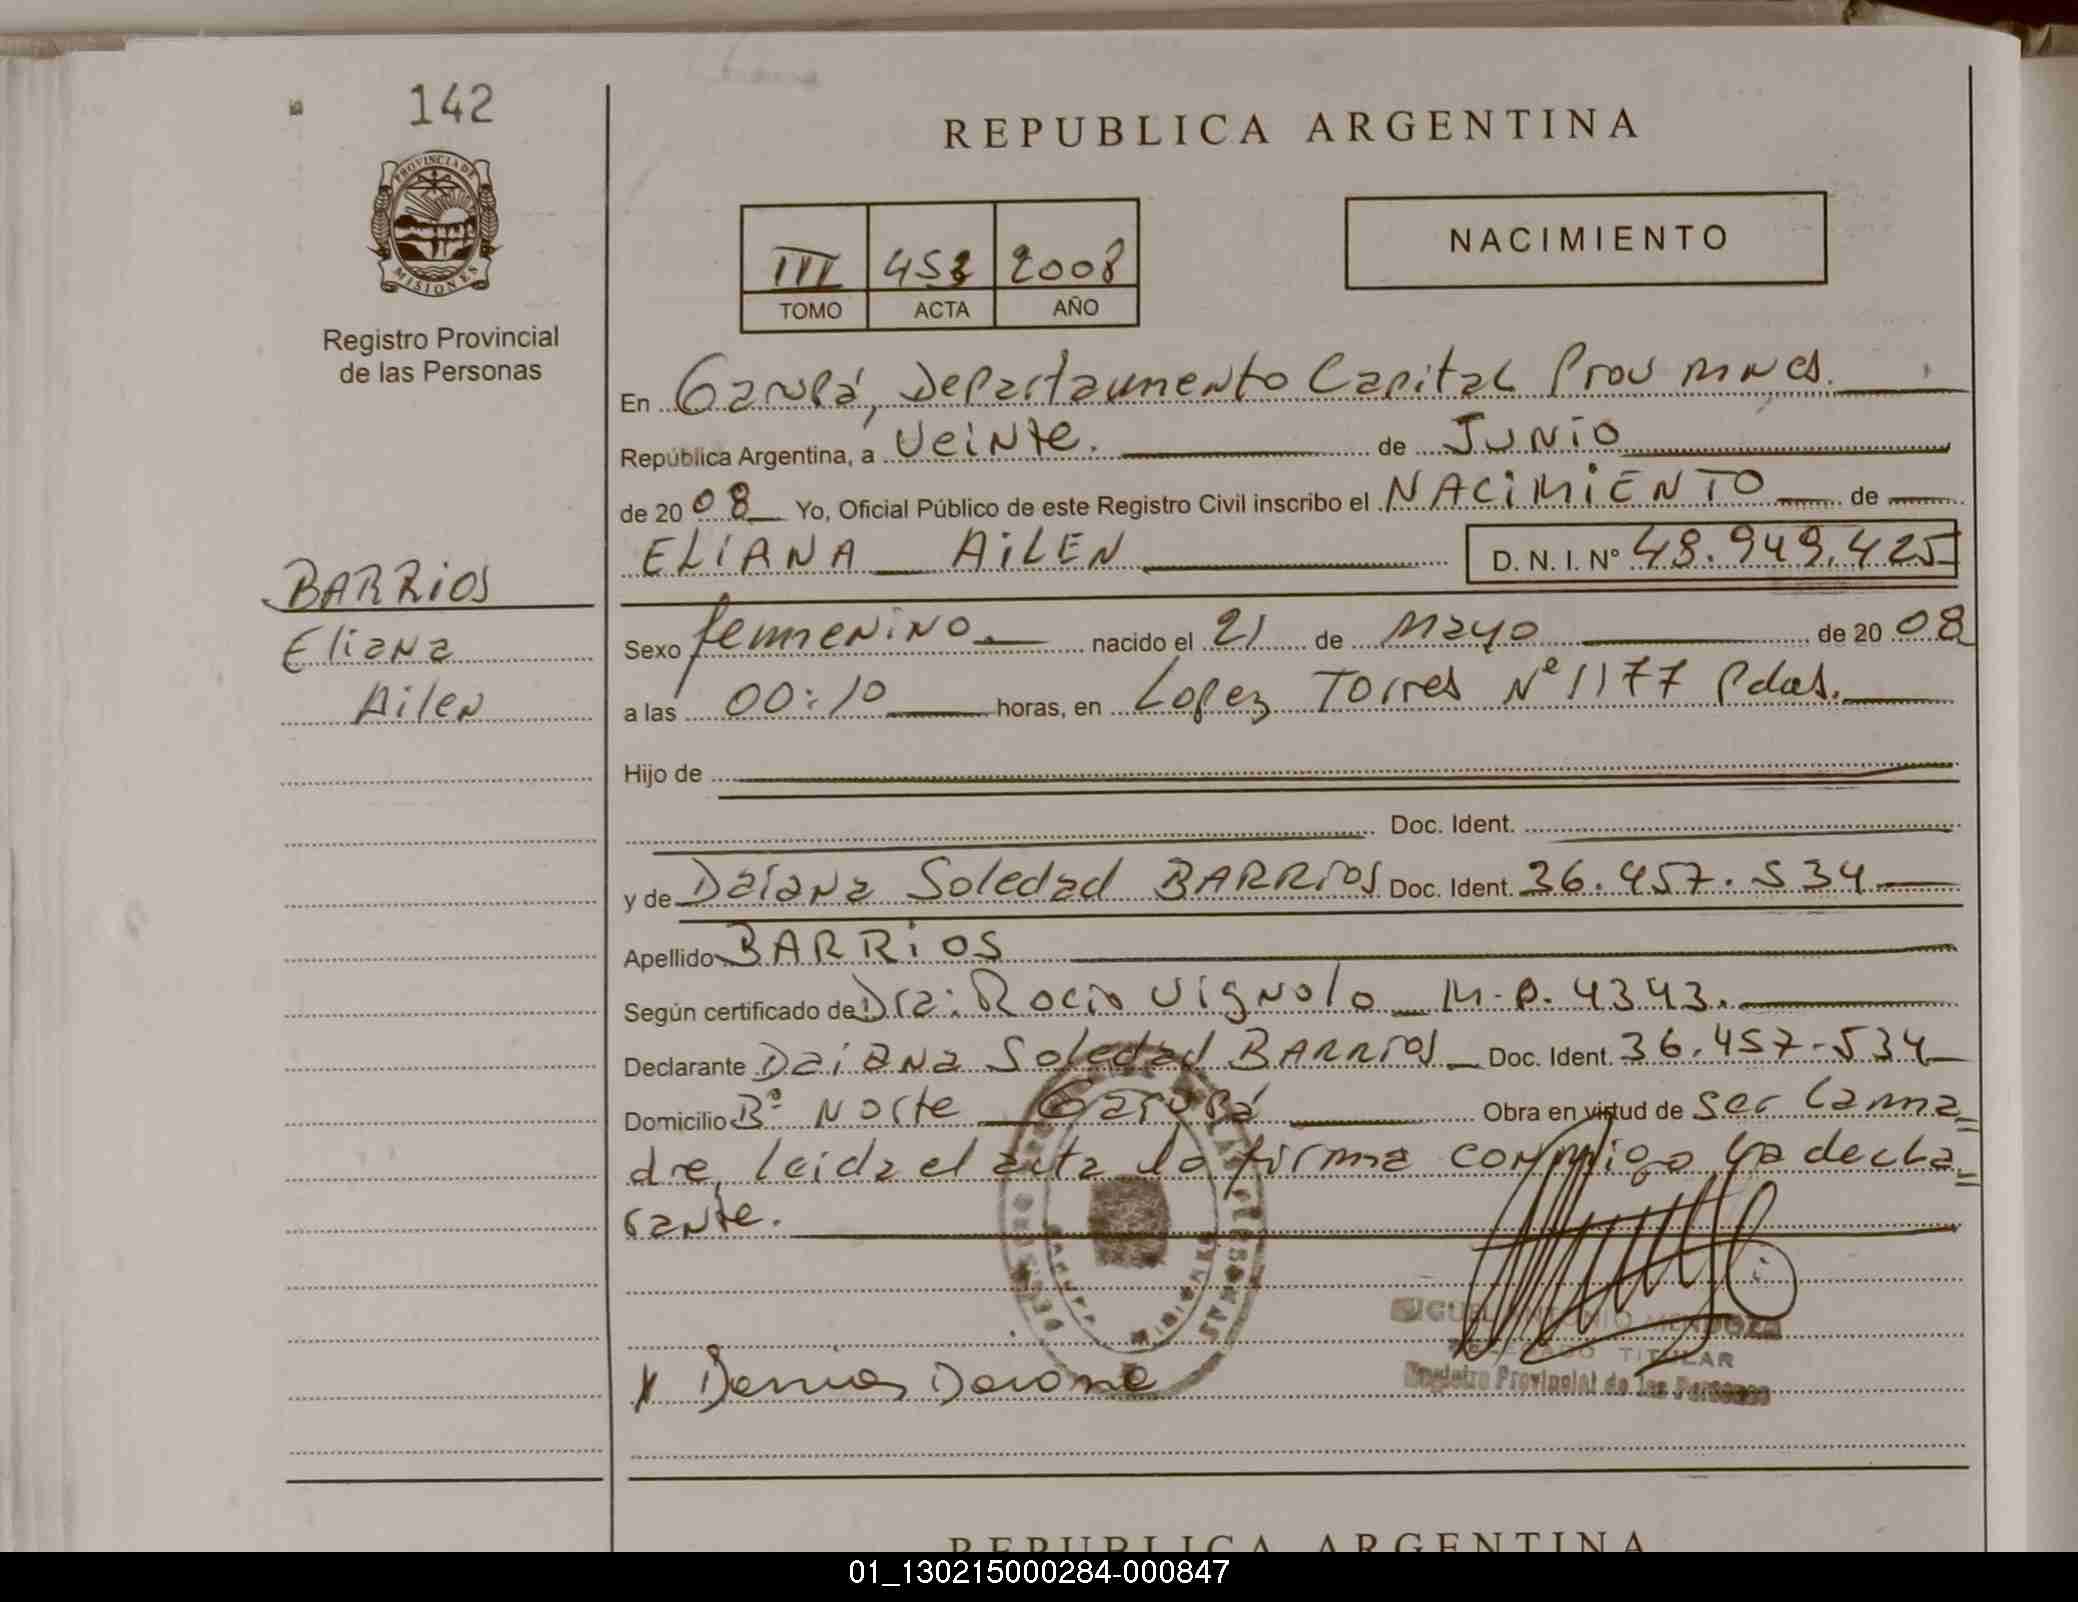 142
PROVINCIA DE
MISIONES
Registro Provincial
de las Personas
BARRIOS
Eliana
Ailen
REPUBLICA ARGENTINA
III 453 2008
TOMO ACTA AÑO
NACIMIENTO
En Garupá, Departamento Capital Prov mnes.
República Argentina, a Veinte. de Junio
de 2008 Yo, Oficial Público de este Registro Civil inscribo el NACIMIENTO de
ELIANA AILEN D. N. I. Nº 48.949.425
Sexo femenino nacido el 21 de Mayo de 2008
a las 00:10 horas, en Lopez Torres Nº 1177 Pdas.
Hijo de
Doc. Ident.
y de Daiana Soledad BARRIOS Doc. Ident. 36.457.534
Apellido BARRIOS
Según certificado de Dra: Rocio Vignolo M.P. 4343.
Declarante Daiana Soledad BARRIOS Doc. Ident. 36.457.534
Domicilio Bº Norte Garupá Obra en virtud de ser la ma=
dre, leida el acta la firma conmigo la decla=
rante.
MIGUEL ANTONIO MENDOZA
DELEGADO TITULAR
Registro Provincial de las Personas
x Barrios Daiana
REPUBLICA ARGENTINA
01_130215000284-000847